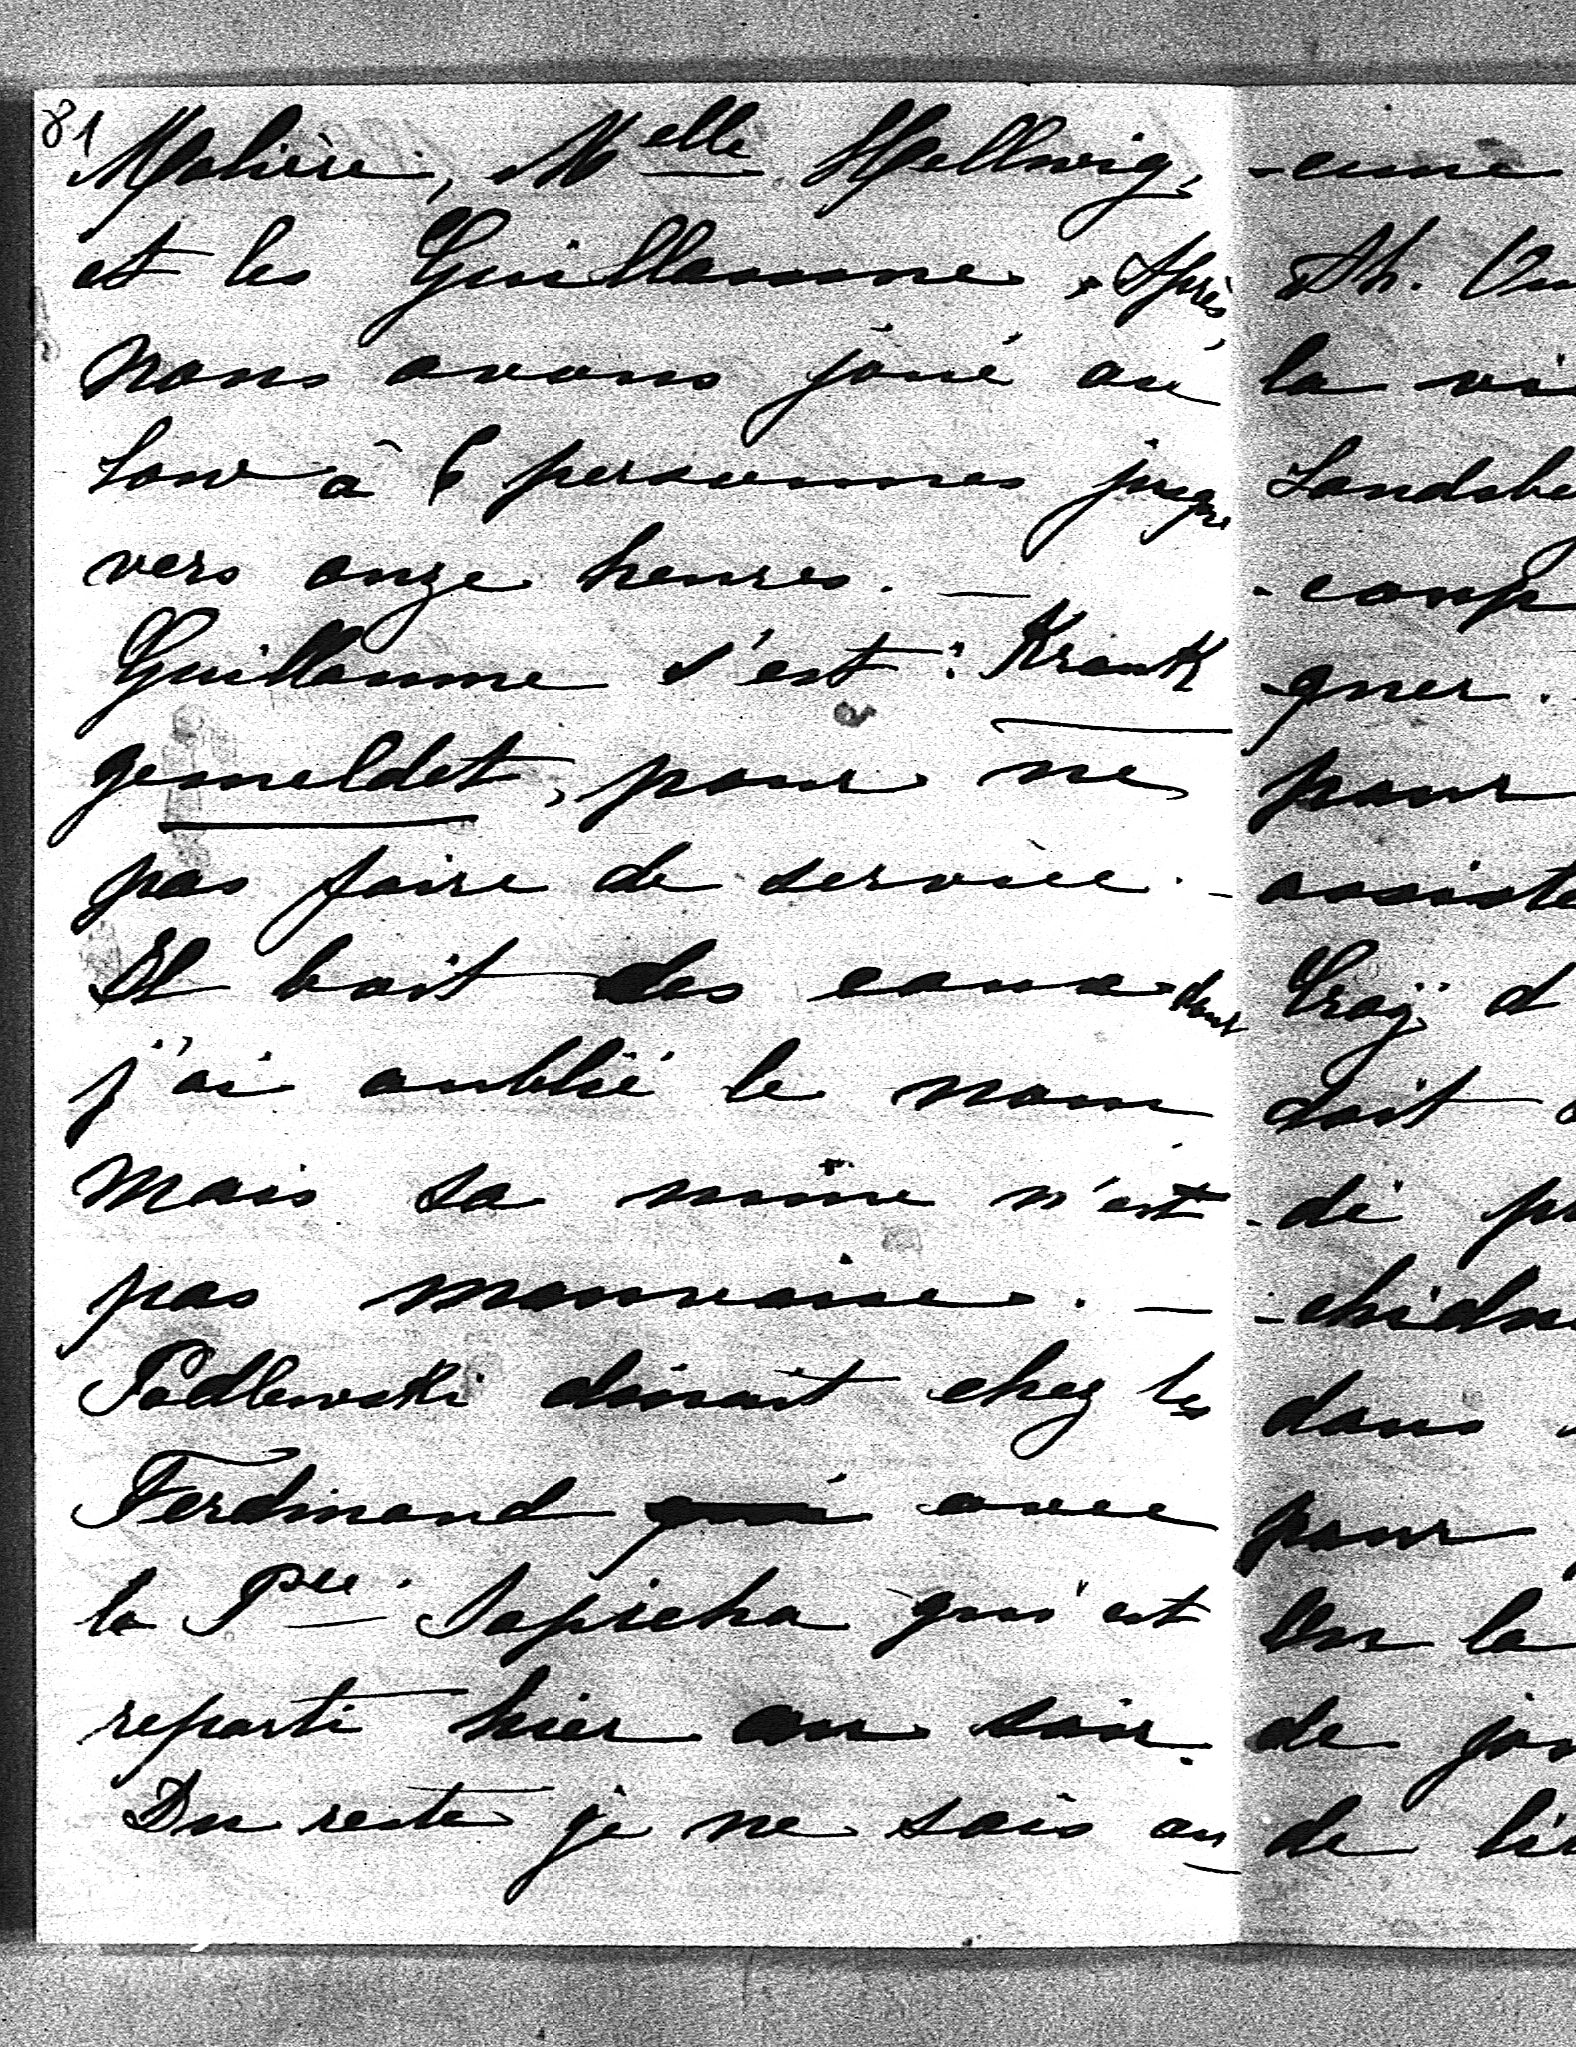 81
Molière, Melle Hellwig,
et les Guillaume. Après
nous avons joué au
Low à 6 personnes jusque
vers onze heures. —
Guillaume s'est: Krank
gemeldet, pour ne
pas faire de service. -
Il boit des eaux dont
j'ai oublié le nom
mais sa mine n'est
pas mauvaise. —
Podlewski dinait chez les
Ferdinand avec
la Pcee. Sapieha qui est
reparti hier au soir.
Du reste je ne sais au-
Th.
la
Landsbe
-coup
-gner.
pour
assiste
Croÿ d
doit
-di
-chidu
dans
pour
On la
de jou
de